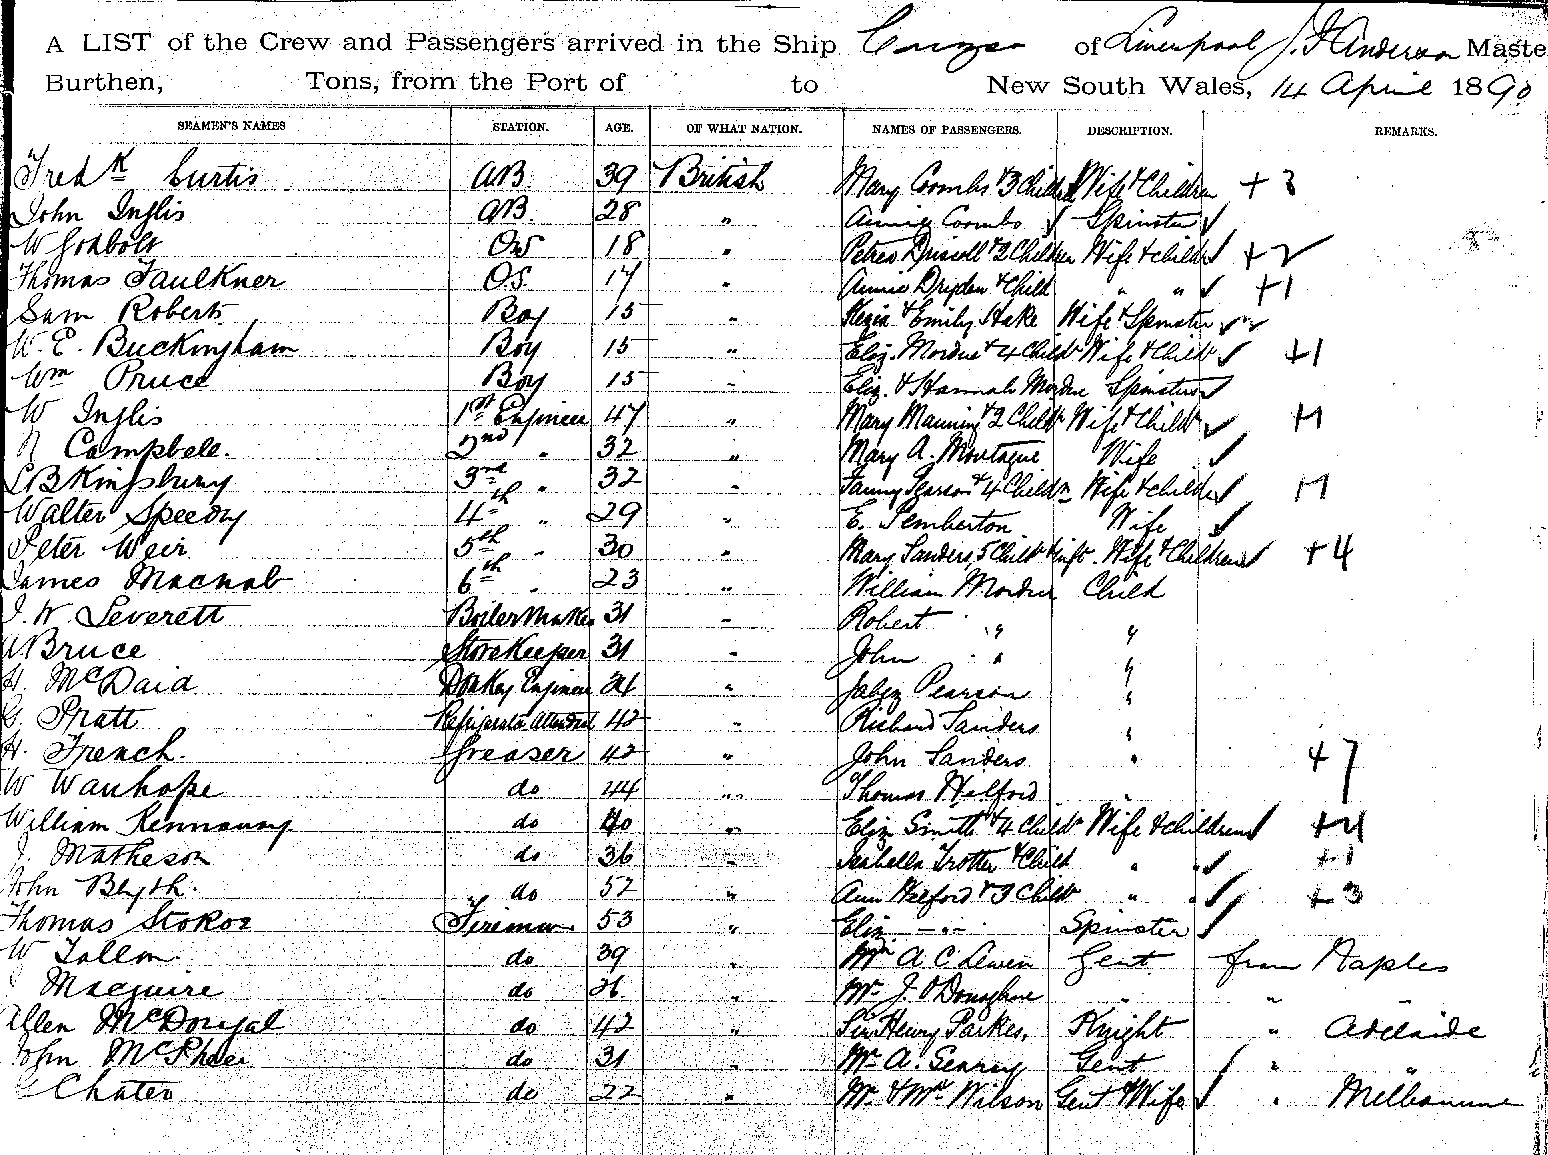 A LIST of the Crew and Passengers arrived in the Ship Cuzco of Liverpool J. F Anderson Maste
Burthen, Tons, from the Port of to New South Wales, 14 April 1890
SEAMEN'S NAMES STATION. AGE. OF WHAT NATION. NAMES OF PASSENGERS. DESCRIPTION. REMARKS.
Fredk Curtis AB 39 British Mary Coombs & 3 Childn Wife & Children +3
John Inglis AB. 28 " Annie Coombs Spinster
W Godbolt OS 18 " Driscoll & 2 Children Wife & childn +2
Thomas Faulkner OS. 17 " Annie Dryden & Child " " +1
Sam Roberts Boy 15 " Kezia & Emily Hake Wife & Spinster
W. E. Buckingham Boy 15 " Eliz. Mordue & 4 Childn Wife & Childn +1
Wm Pruce Boy 15 " Eliz. & Hannah Mordue Spinsters
W Inglis 1st Engineer 47 " Mary Manning & 2 Childn Wife & Childn +1
N Campbell. 2nd " 32 " Mary A. Montague Wife
B Kingsbury 3rd " 32 " Fanny Pearson & 4 Childn Wife & childn +1
Walter Speedy 4th " 29 " E. Pemberton Wife
Peter Weir 5th " 30 " Mary Sanders, 5 Childn & inft. Wife & Children +4
James Macnab 6th " 23 " William Mordue Child
J. W. Leverett Boiler Maker 31 " Robert " "
Bruce Storekeeper 31 " John " "
H. McDaid Donkey Engineer 34 " Jabez Pearson "
G. Pratt Refrigerator Attendant 42 " Richard Sanders "
H. French. Greaser 42 " John Sanders " +7
W Wauhope do 44 " Thomas Welford "
William Kennaway do 40 " Eliz Smith & 4 Childn Wife & children +4
J. Matheson do 36 " Isabella Trotter & Child " " +1
John Blyth. do 52 " Ann Welford & 3 Childn " " +3
Thomas Stokoe Fireman 53 " Eliz " Spinster
W Tallon do 39 " Mr A C Lewin Gent from Naples
Macguire do 26 " Mr J. O'Donoghue " " "
Allen McDougal do 42 " Sir Henry Parkes, Knight " Adelaide
John McPhee do 31 " Mr A. Gent " "
Chater do 22 " Mr & Mrs Wilson Gent & Wife " Melbourne